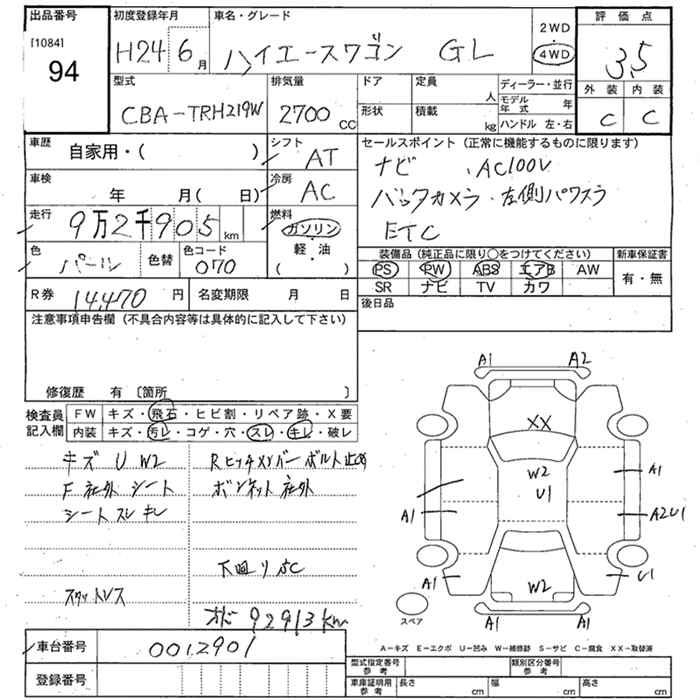 出品番号 初度登録年月 車名・グレード 2WD 評価点
[1084] H24 6月 ハイエースワゴン GL 4WD 3,5
94 外装 内装
型式 排気量 ドア 定員 人 ディーラー・並行 C C
CBA-TRH219W 2700 CC 形状 積載 kg モデル年式 年
ハンドル 左・右
車歴 自家用・( ) シフト AT セールスポイント (正常に機能するものに限ります)
ナビ .AC100V
車検 年 月( 日) 冷房 AC バックカメラ・左側パワスラ
走行 9万2千905km 燃料 ガソリン・軽・油 ( ) ETC
色 パール 色替 色コード 070 装備品 (純正品に限り○をつけてください) 新車保証書
PS PW ABS エアB AW 有・無
R券 14,470円 名変期限 月 日 SR ナビ TV カワ
後日品
注意事項申告欄 (不具合内容等は具体的に記入して下さい)
修復歴 有 〔箇所 〕
検査員記入欄 FW キズ・飛石・ヒビ割・リペア跡・X要
内装 キズ・汚レ・コゲ・穴・スレ・キレ・破レ
キズ U W2 Rヒッチメンバー ボルト止め
F 社外 シート ボンネット社外
シートスレ キレ
下回りSC
スタットレス
オド 92913km
車台番号 0012901
登録番号
A1 A2
XX
W2
U1
A1
A1 A2U1
A1 W2 U1
スペア A1 A1
A-キズ E-エクボ U-凹み W-補修跡 S-サビ C-腐食 XX-取替済
型式指定番号 参考 類別区分番号 参考
車庫証明用 参考 長さ cm 幅 cm 高さ cm